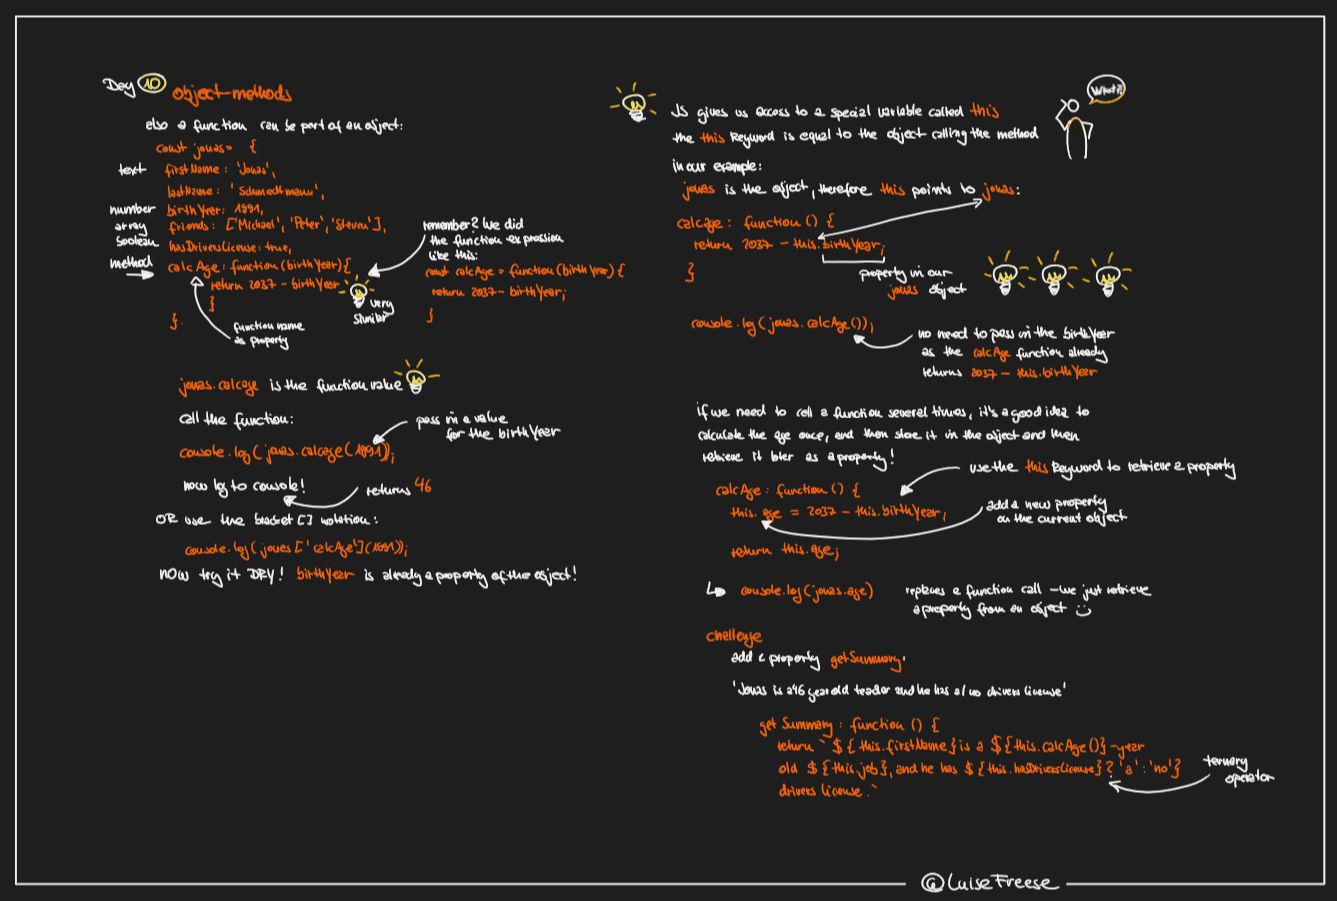 Day 10 object-methods
also a function can be part of an object:
const jonas = {
text firstName: 'Jonas',
lastName: 'Schmedtmann',
number birthYear: 1991,
array friends: ['Michael', 'Peter', 'Steven'],
boolean hasDriversLicense: true,
method calcAge: function(birthYear){
return 2037 - birthYear
}
}
function name
as property
very
similar
remember? we did
the function expression
like this:
const calcAge = function(birthYear) {
return 2037 - birthYear;
}
jonas.calcage is the function value
call the function:
pass in a value
for the birthYear
console.log(jonas.calcage(1991));
now log to console!
returns 46
OR use the bracket [] notation:
console.log(jonas['calcAge'](1991));
now try it DRY! birthYear is already a property of the object!
JS gives us access to a special variable called this
the this keyword is equal to the object calling the method
What?!
in our example:
jonas is the object, therefore this points to jonas:
calcage: function () {
return 2037 - this.birthYear;
}
property in our
jonas object
console.log(jonas.calcAge());
no need to pass in the birthYear
as the calcAge function already
returns 2037 - this.birthYear
if we need to call a function several times, it's a good idea to
calculate the age once, and then store it in the object and then
retrieve it later as a property!
use the this keyword to retrieve a property
calcAge: function () {
this.age = 2037 - this.birthYear;
add a new property
on the current object
return this.age;
console.log(jonas.age)
replaces a function call - we just retrieve
a property from an object
challenge
add a property getSummary.
'Jonas is a 46 year old teacher and he has a/no drivers license'
getSummary: function () {
return `${this.firstName} is a ${this.calcAge()}-year
old ${this.job}, and he has ${this.hasDriversLicense} ? 'a' : 'no'}
drivers license.`
ternary
operator
@LuiseFreese